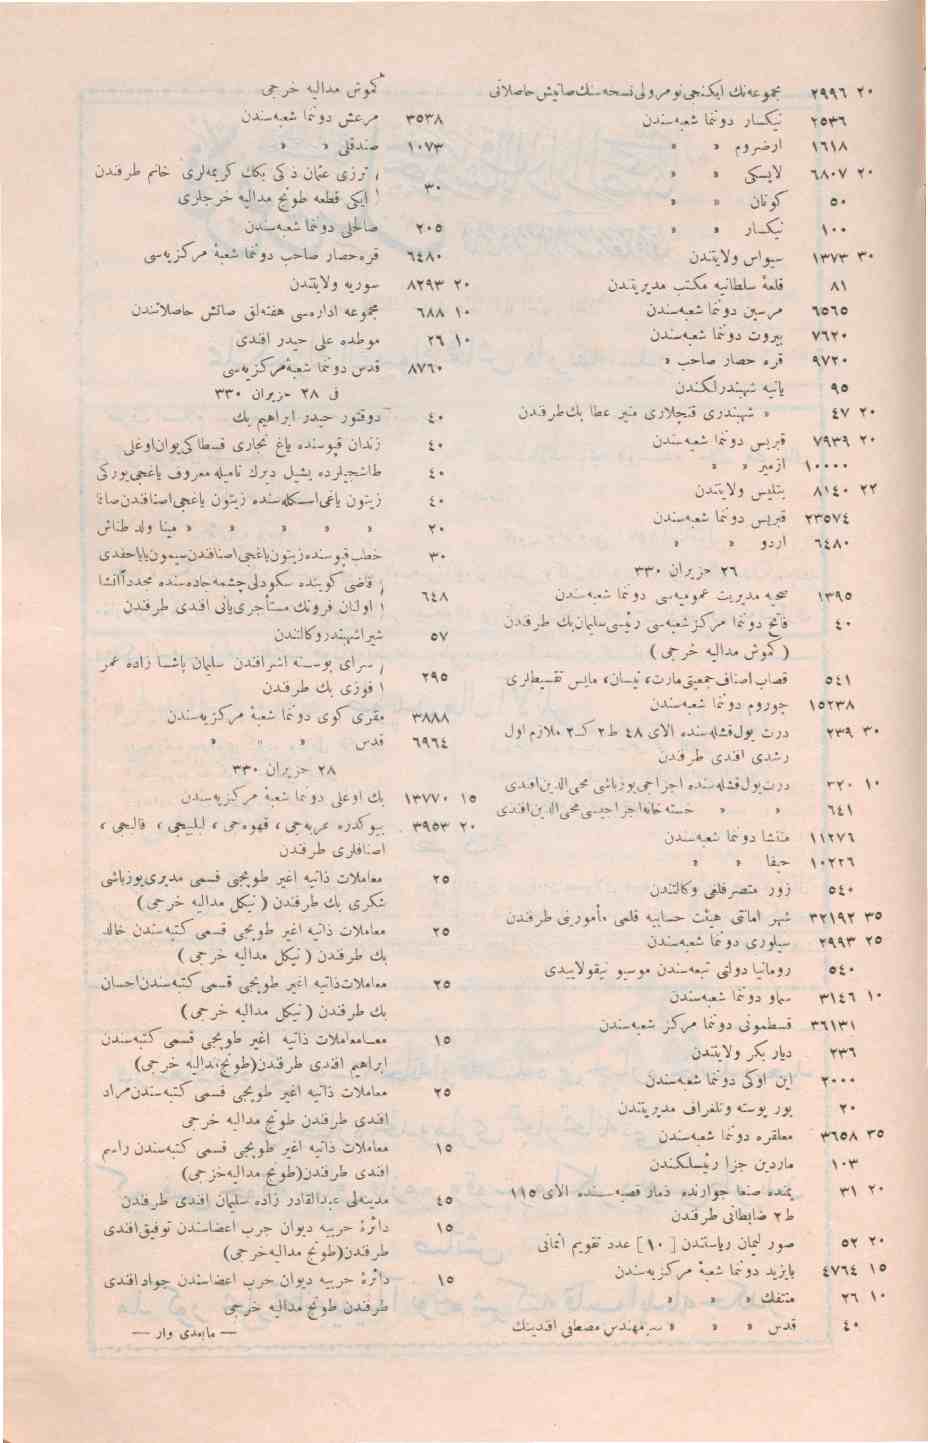 ٢٠ ٢٩٩٦ مجموعه‌نك ايكنجى نومرولى نسخه‌سنك صاتيش حاصلاتى
٢٥٣٦ نيكسار دوننما شعبه‌سندن
١٦١٨ ارضروم » »
٢٠ ٦٨٠٧ لاپسكى » »
٥٠ كونان » »
١٠٠ نيكسار » »
٣٠ ١٣٧٣ سيواس ولايتندن
٨١ قلعهٔ سلطانيه مكتب مديريتندن
٦٥٦٥ مرسين دوننما شعبه‌سندن
٧٦٢٠ بيروت دوننما شعبه‌سندن
٩٧٢٠ قره حصار صاحب »
٩٥ يانيه شهبندرلكندن
٢٠ ٤٧ » شهبندرى قنچلارى منير عطا بك طرفندن
٢٠ ٧٩٣٩ قبريس دوننما شعبه‌سندن
١٠٠٠٠ ازمير » »
٢٢ ٨١٤٠ بتليس ولايتندن
٢٣٥٧٤ قبريس دوننما شعبه‌سندن
٦٤٨٠ اردو » »
٢٦ حزيران ٣٣٠
١٣٩٥ صحيه مديريت عموميه‌سى دوننما شعبه‌سندن
٤٠ فاتح دوننما مركز شعبه‌سى رئيسى سليمان بك طرفندن
(كموش مداليه خرجى)
٥٤١ قصاب اصناف جمعيتى مارت، نيسان، مايس تقسيطلرى
١٥٢٣٨ چوروم دوننما شعبه‌سندن
٣٠ ٢٣٩ درت يول قشله‌سنده الاى ٤٨ ط ٢ ك ٢ ملازم اول
رشدى افندى طرفندن
١٠ ٣٢٠ درت يول قشله‌سنده اجزاجى يوزباشى محى الدين افندى
٦٤١ » » خسته‌خانه اجزاجيسى محى الدين افندى
١١٢٧٦ منتشا دوننما شعبه‌سندن
١٠٢٢٦ حيفا » »
٥٤٠ زور متصرفلغى وكالتندن
٣٥ ٣٢١٩٢ شهر امانتى هيئت حسابيه قلمى مأمورينى طرفندن
٢٥ ٢٩٩٣ سيلورى دوننما شعبه‌سندن
٥٤٠ رومانيا دولتى تبعه‌سندن موسيو نيقولاييدى
١٠ ٣١٤٦ سماو دوننما شعبه‌سندن
٣٦١٣١ قسطمونى دوننما مركز شعبه‌سندن
٢٣٦ ديار بكر ولايتندن
٢٠٠٠ اين اوكى دوننما شعبه‌سندن
٢٠ يور پوسته وتلغراف مديريتندن
٣٥ ٣٦٥٨ معلقره دوننما شعبه‌سندن
١٠٣ ماردين جزا رئيسلكندن
٢٠ ٣١ يمنده صنعا جوارنده ذمار قصبه‌سنده الاى ١١٥
ط ٢ ضابطانى طرفندن
٢٠ ٥٢ صور ليمان رياستندن [١٠] عدد تقويم اثمانى
١٥ ٤٧٦٤ بايزيد دوننما شعبهٔ مركزيه‌سندن
١٠ ٢٦ منتفك » » »
٤٠ قدس » » » مهندس مصطفى افندينك
كموش مداليه خرجى
٣٥٣٨ مرعش دوننما شعبه‌سندن
١٠٧٣ صندقلى » »
٣٠ ترزى عثمان ذكى بكك كريمه‌لرى خانم طرفندن
ايكى قطعه طونج مداليه خرجلرى
٢٠٥ صالحلى دوننما شعبه‌سندن
٦٤٨٠ قره‌حصار صاحب دوننما شعبهٔ مركزيه‌سى
٢٠ ٨٢٩٣ سوريه ولايتندن
١٠ ٦٨٨ مجموعه اداره‌سى هفته‌لق صاتش حاصلاتندن
١٠ ٢٦ موطده على حيدر افندى
٨٧٦٠ قدس دوننما شعبهٔ مركزيه‌سى
فى ٢٨ حزيران ٣٣٠
٤٠ دوقتور حيدر ابراهيم بك
٤٠ زندان قپوسنده ياغ تجارى قسطاكى يوان اوغلى
٤٠ طاشجيلرده يشيل ديرك ناميله معروف ياغجى يوركى
٤٠ زيتون ياغى اسكله‌سنده زيتون ياغجى اصنافندن
٢٠ » » » » » مينا ولد طناش
٣٠ حطب قپوسنده زيتون ياغجى اصنافندن سيمون بابا حفدى
٦٤٨ قاضى كوينده سكودلى چشمه جاده‌سنده مجدداً انشا
اولنان فرونك مستأجرى يانى افندى طرفندن
٥٧ شيرا شهبندر وكالتندن
٢٩٥ سراى بوسنه اشرافندن سليمان پاشا زاده عمر
فوزى بك طرفندن
٣٨٨٨ مقرى كوى دوننما شعبهٔ مركزيه‌سندن
٦٩٦٤ قدس » » »
٢٨ حزيران ٣٣٠
١٥ ١٣٧٧٠ بك اوغلى دوننما شعبهٔ مركزيه‌سندن
٢٠ ٣٩٥٣ بيوكدره عربه‌جى، قهوه‌جى، لبلبيجى، قاليجى،
اصنافلرى طرفندن
٢٥ معاملات ذاتيه اغير طوپجى قسمى مديرى يوزباشى
شكرى بك طرفندن (نيكل مداليه خرجى)
٢٥ معاملات ذاتيه اغير طوپجى قسمى كتبه‌سندن خالد
بك طرفندن (نيكل مداليه خرجى)
٢٥ معاملات ذاتيه اغير طوپجى قسمى كتبه‌سندن احسان
بك طرفندن (نيكل مداليه خرجى)
١٥ معـامعاملات ذاتيه اغير طوپجى قسمى كتبه‌سندن
ابراهيم افندى طرفندن (طونج مداليه خرجى)
٢٥ معاملات ذاتيه اغير طوپجى قسمى كتبه‌سندن مراد
افندى طرفندن طونج مداليه خرجى
١٥ معاملات ذاتيه اغير طوپجى قسمى كتبه‌سندن راسم
افندى طرفندن (طونج مداليه خرجى)
٤٥ مدينه‌لى عبدالقادر زاده سليمان افندى طرفندن
١٥ دائرهٔ حربيه ديوان حرب اعضاسندن توفيق افندى
طرفندن (طونج مداليه خرجى)
١٥ دائرهٔ حربيه ديوان حرب اعضاسندن جواد افندى
طرفندن طونج مداليه خرجى
— مابعدى وار —